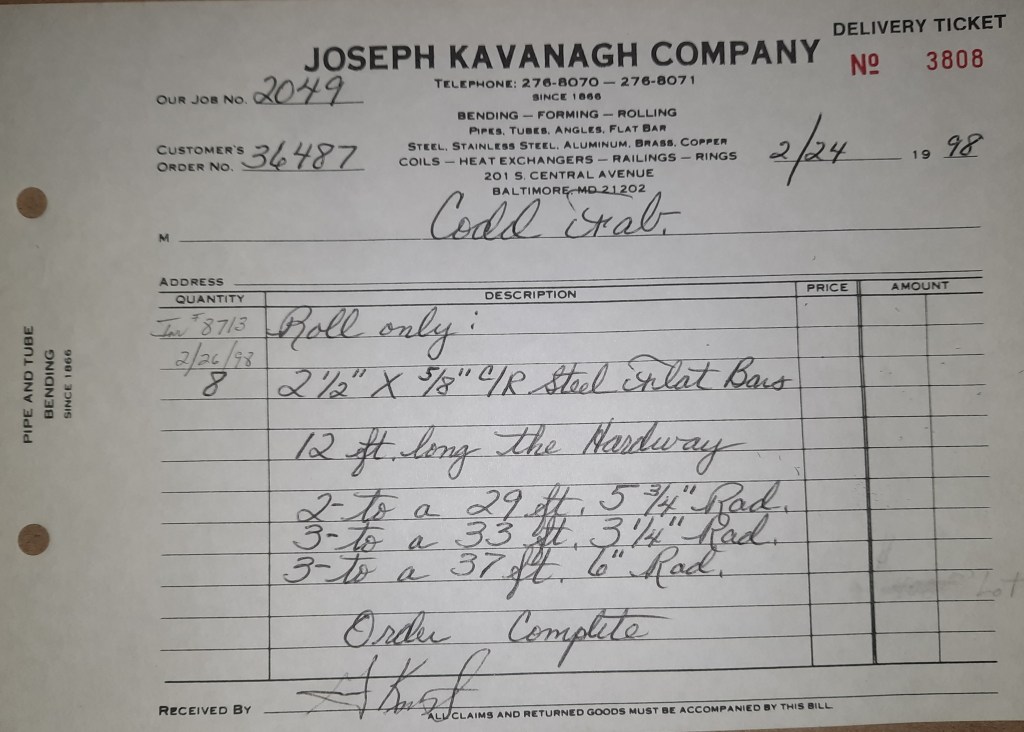 DELIVERY TICKET
JOSEPH KAVANAGH COMPANY
Nº 3808
TELEPHONE: 276-8070 — 276-8071
SINCE 1866
OUR JOB NO. 2049
BENDING — FORMING — ROLLING
PIPES, TUBES, ANGLES, FLAT BAR
STEEL, STAINLESS STEEL, ALUMINUM, BRASS, COPPER
COILS — HEAT EXCHANGERS — RAILINGS — RINGS
CUSTOMER'S
ORDER NO. 36487
2/24 19 98
201 S. CENTRAL AVENUE
BALTIMORE, MD 21202
M Codd Fab.
ADDRESS
QUANTITY DESCRIPTION PRICE AMOUNT
Inv # 8713 Roll only:
2/26/98
8 2 1/2" X 5/8" C/R Steel Flat Bars
12 ft. long the Hardway
2- to a 29 ft. 5 3/4" Rad.
3- to a 33 ft. 3 1/4" Rad.
3- to a 37 ft. 6" Rad.
Lot
Order Complete
RECEIVED BY
ALL CLAIMS AND RETURNED GOODS MUST BE ACCOMPANIED BY THIS BILL
PIPE AND TUBE
BENDING
SINCE 1866